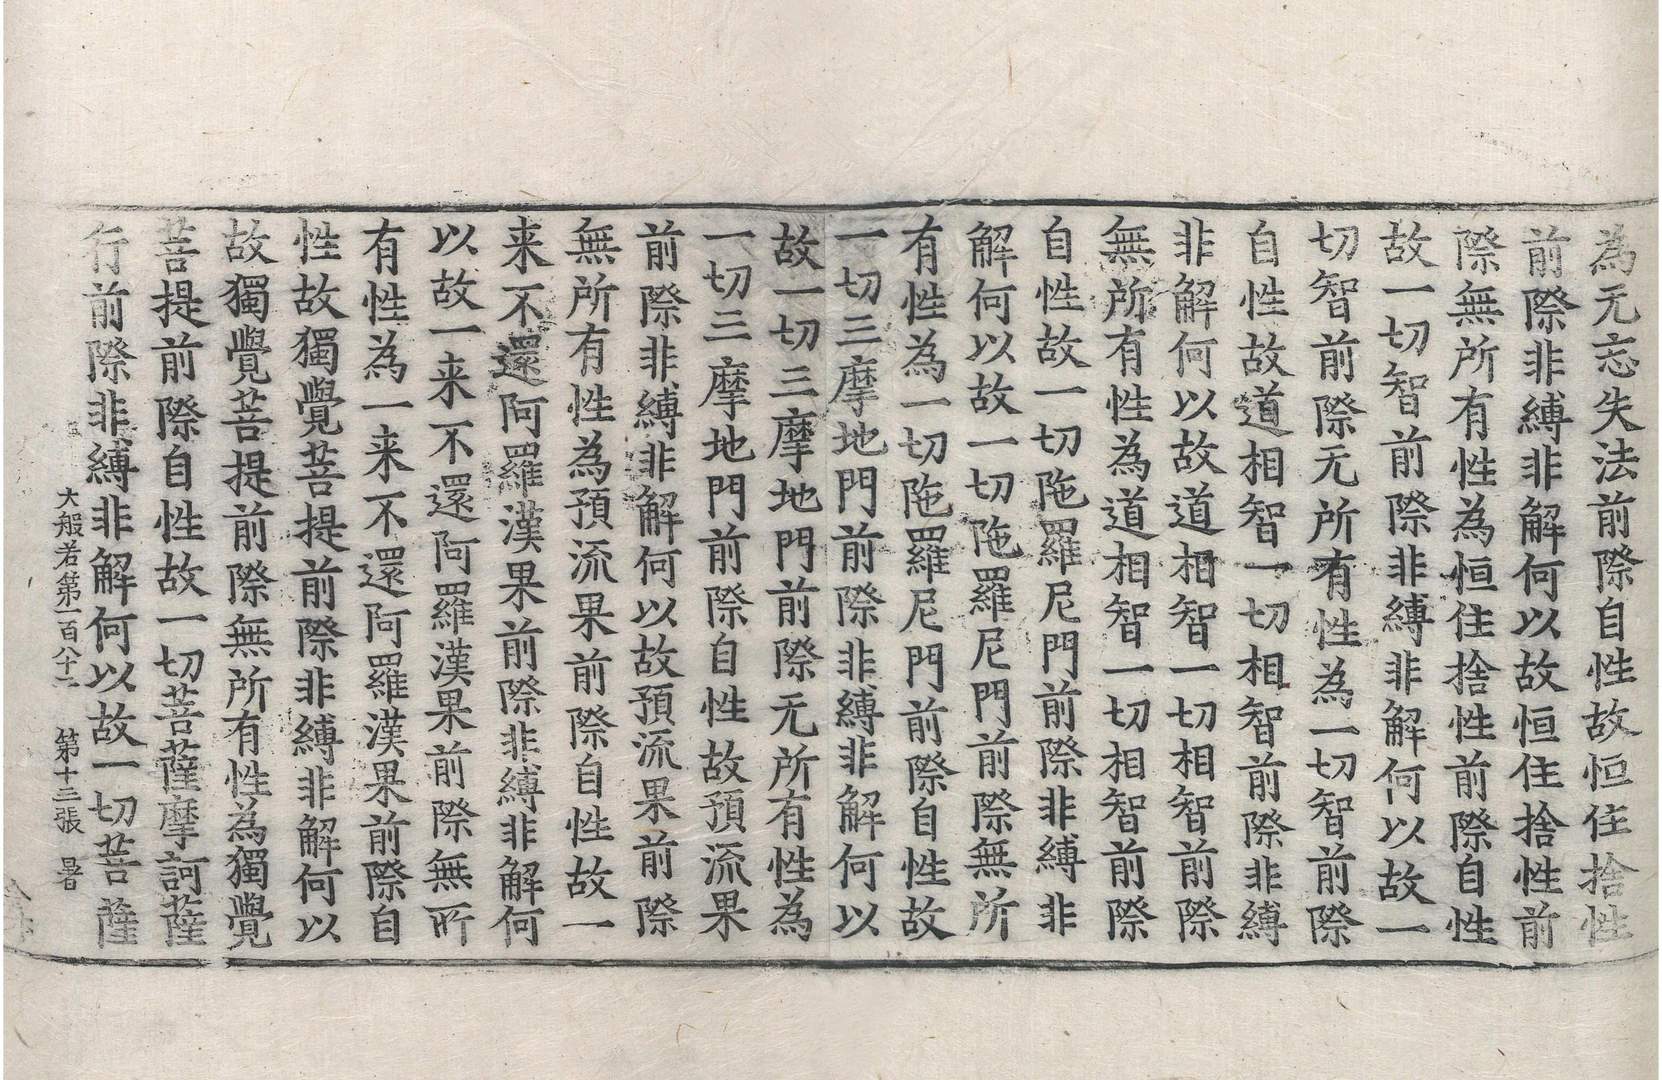 為无忘失法前際自性故恒住捨性
前際非縛非解何以故恒住捨性前
際無所有性為恒住捨性前際自性
故一切智前際非縛非解何以故一
切智前際无所有性為一切智前際
自性故道相智一切相智前際非縛
非解何以故道相智一切相智前際
無所有性為道相智一切相智前際
自性故一切陁羅尼門前際非縛非
解何以故一切陁羅尼門前際無所
有性為一切陁羅尼門前際自性故
一切三摩地門前際非縛非解何以
故一切三摩地門前際无所有性為
一切三摩地門前際自性故預流果
前際非縛非解何以故預流果前際
無所有性為預流果前際自性故一
来不還阿羅漢果前際非縛非解何
以故一来不還阿羅漢果前際無所
有性為一来不還阿羅漢果前際自
性故獨覺菩提前際非縛非解何以
故獨覺菩提前際無所有性為獨覺
菩提前際自性故一切菩薩摩訶薩
行前際非縛非解何以故一切菩薩
大般若第一百八十二 第十三張 暑